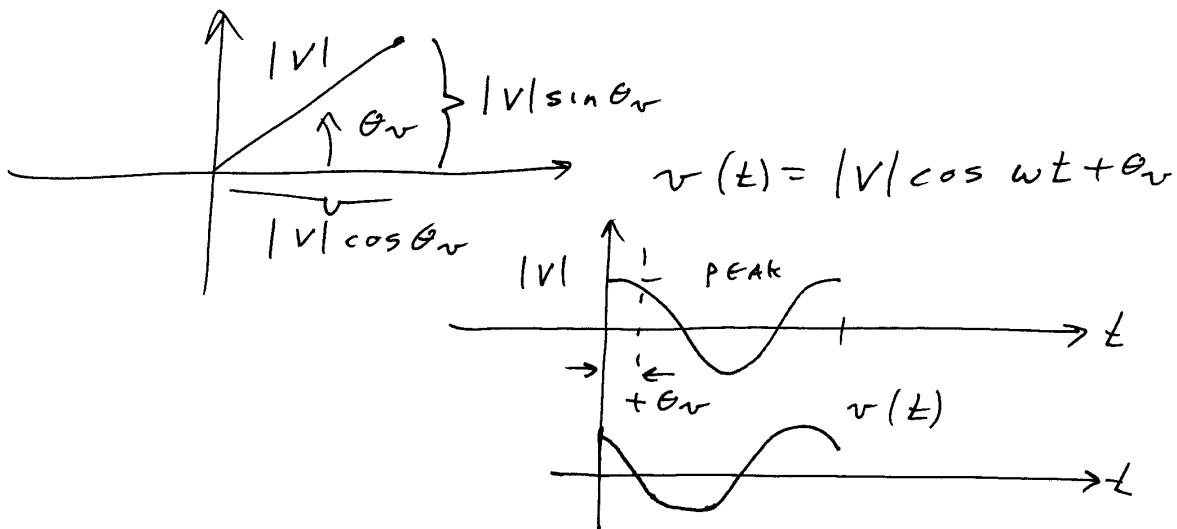 |V|
θv
|V| sin θv
|V| cos θv
v(t) = |V| cos ωt + θv
|V|
PEAK
t
+θv
v(t)
t